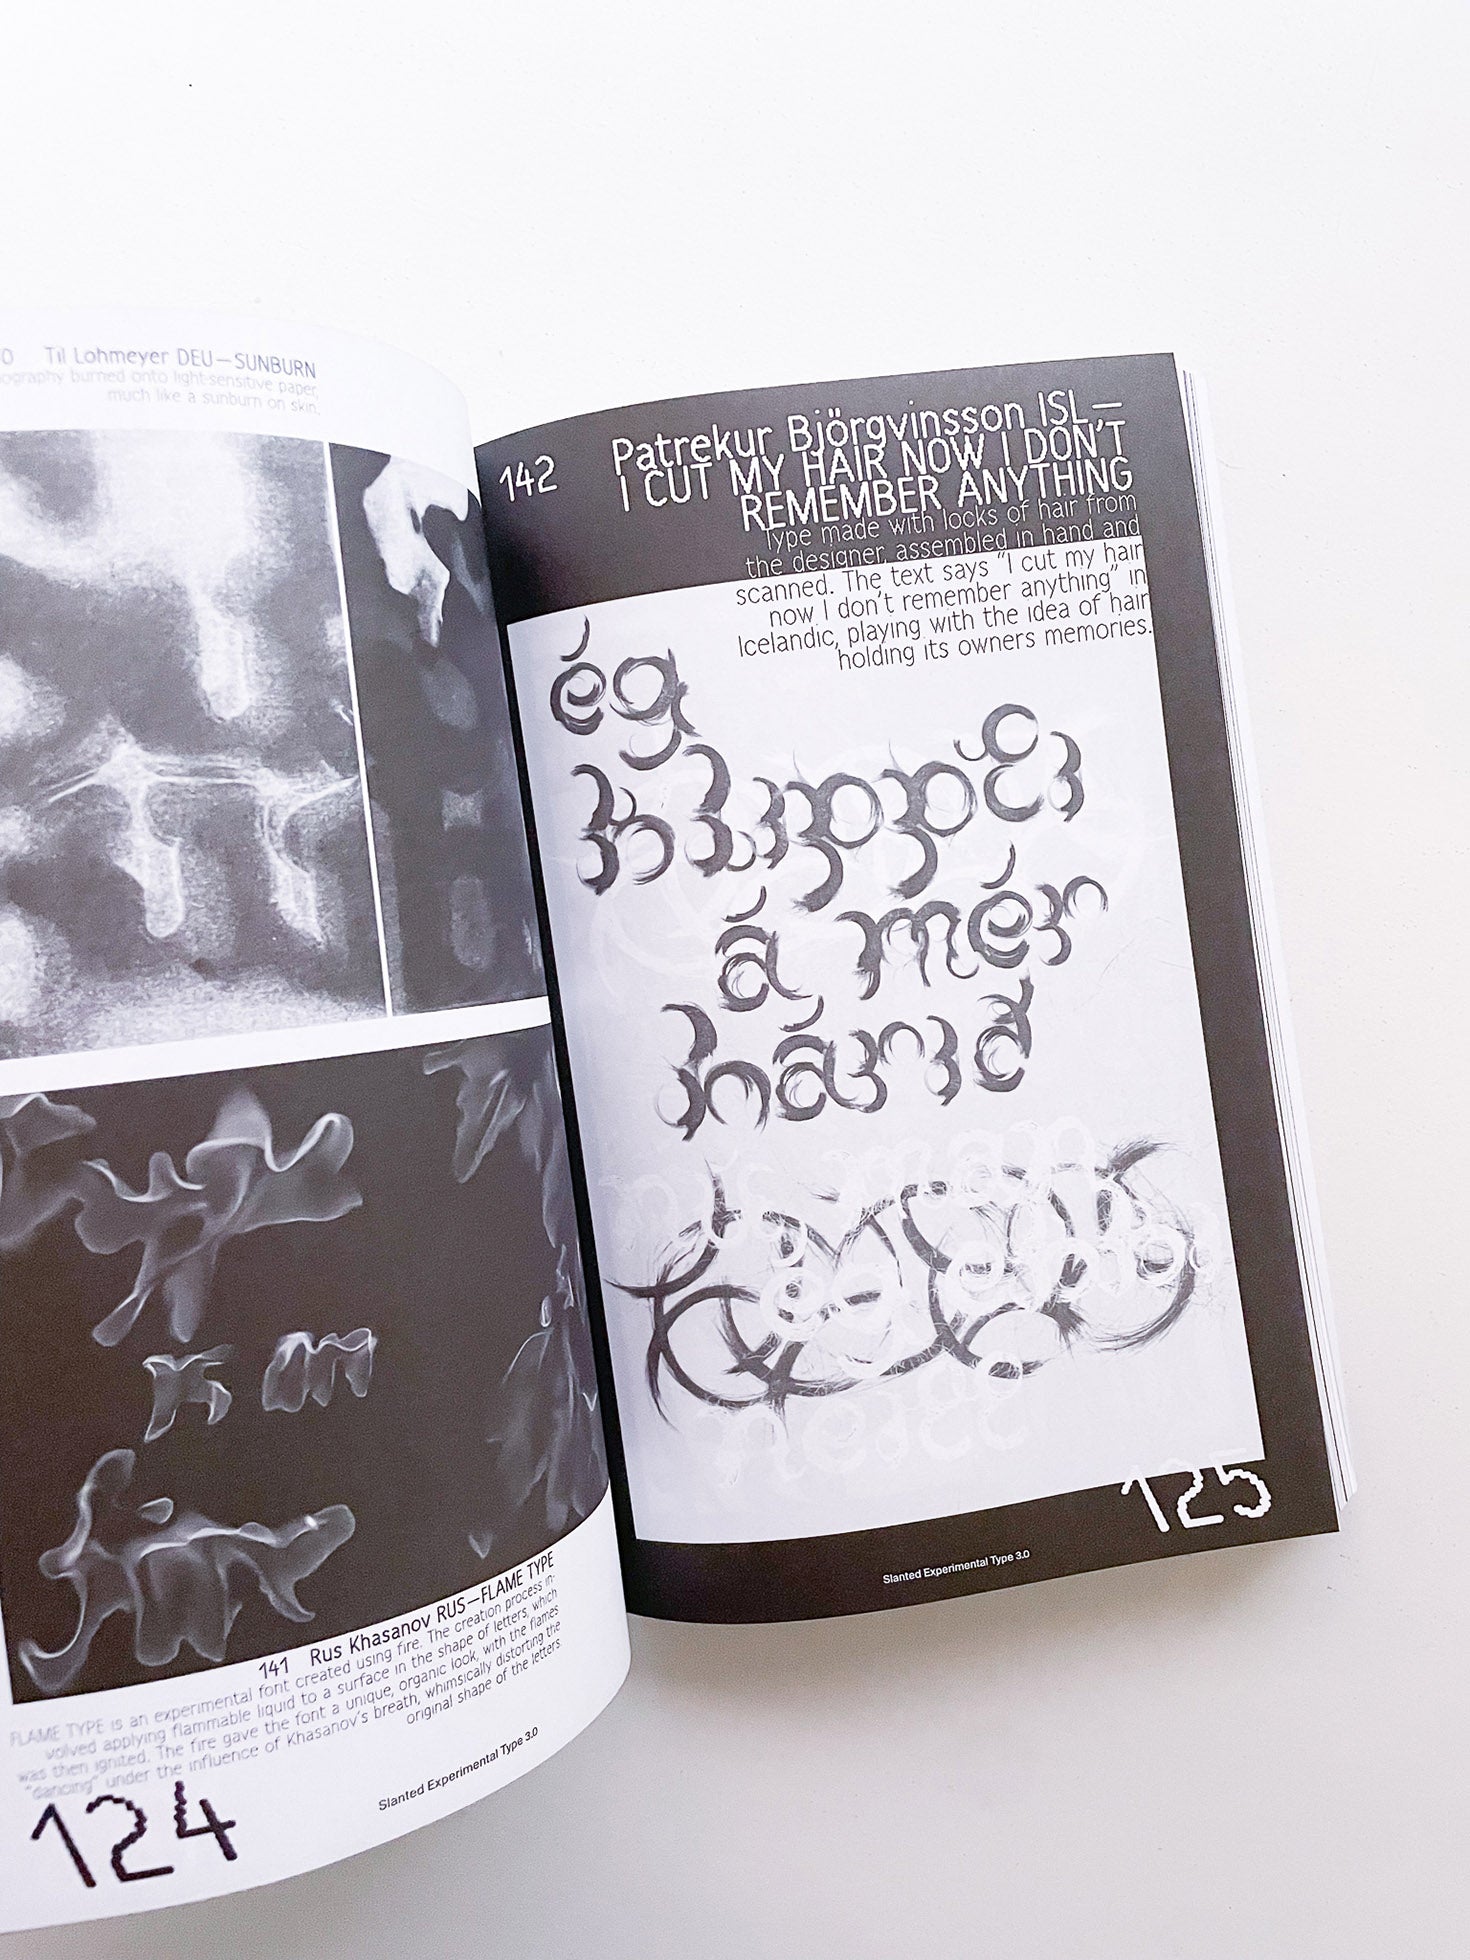 Til Lohmeyer DEU—SUNBURN
burned onto light-sensitive paper,
much like a sunburn on skin.
141 Rus Khasanov RUS—FLAME TYPE
FLAME TYPE is an experimental font created using fire. The creation process in-
volved applying flammable liquid to a surface in the shape of letters, which
was then ignited. The fire gave the font a unique, organic look, with the flames
"dancing" under the influence of Khasanov's breath, whimsically distorting the
original shape of the letters.
Slanted Experimental Type 3.0
124
142 Patrekur Björgvinsson ISL—
I CUT MY HAIR NOW I DON'T
REMEMBER ANYTHING
Type made with locks of hair from
the designer, assembled in hand and
scanned. The text says "I cut my hair
now I don't remember anything" in
Icelandic, playing with the idea of hair
holding its owners memories.
ég
klippti
á mér
hárið
man
ég
neitt
125
Slanted Experimental Type 3.0